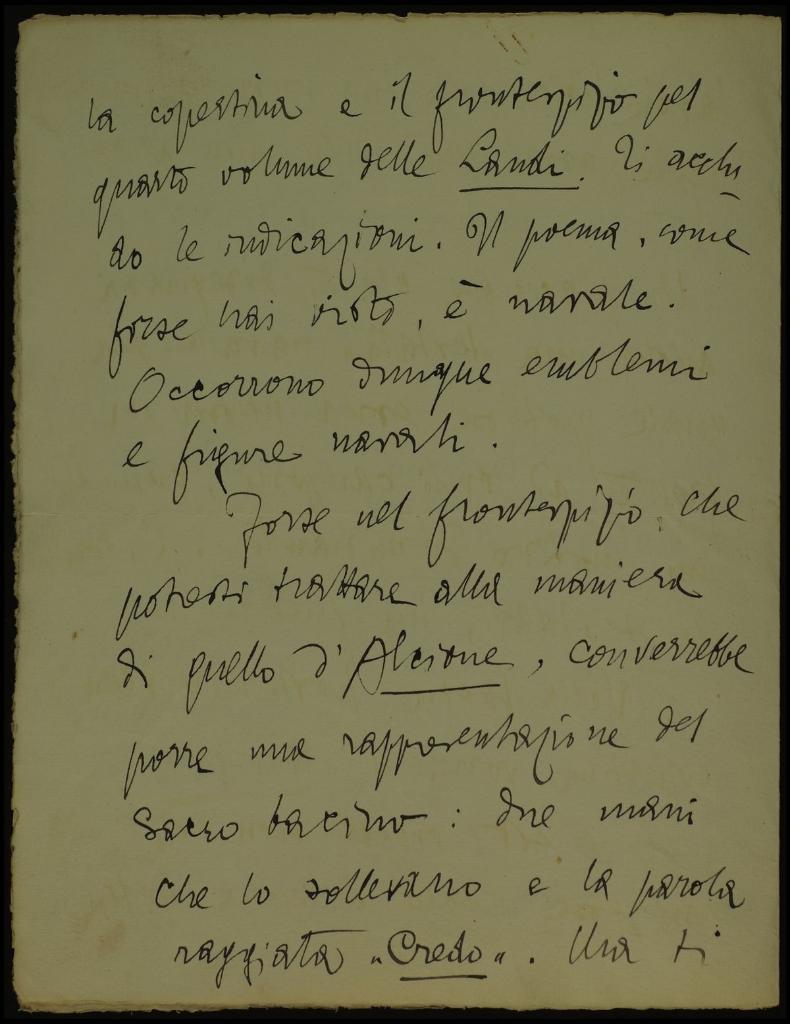 la copertina e il frontespizio pel
quarto volume delle Laudi. Ti acchiu
do le indicazioni. Il poema, come
forse hai visto, è navale.
Occorrono dunque emblemi
e figure navali.
Forse nel frontespizio, che
potresti trattare alla maniera
di quello d'Alcione, converrebbe
porre una rappresentazione del
Sacro bacino: due mani
che lo sollevano e la parola
raggiata "Credo". Ma ti